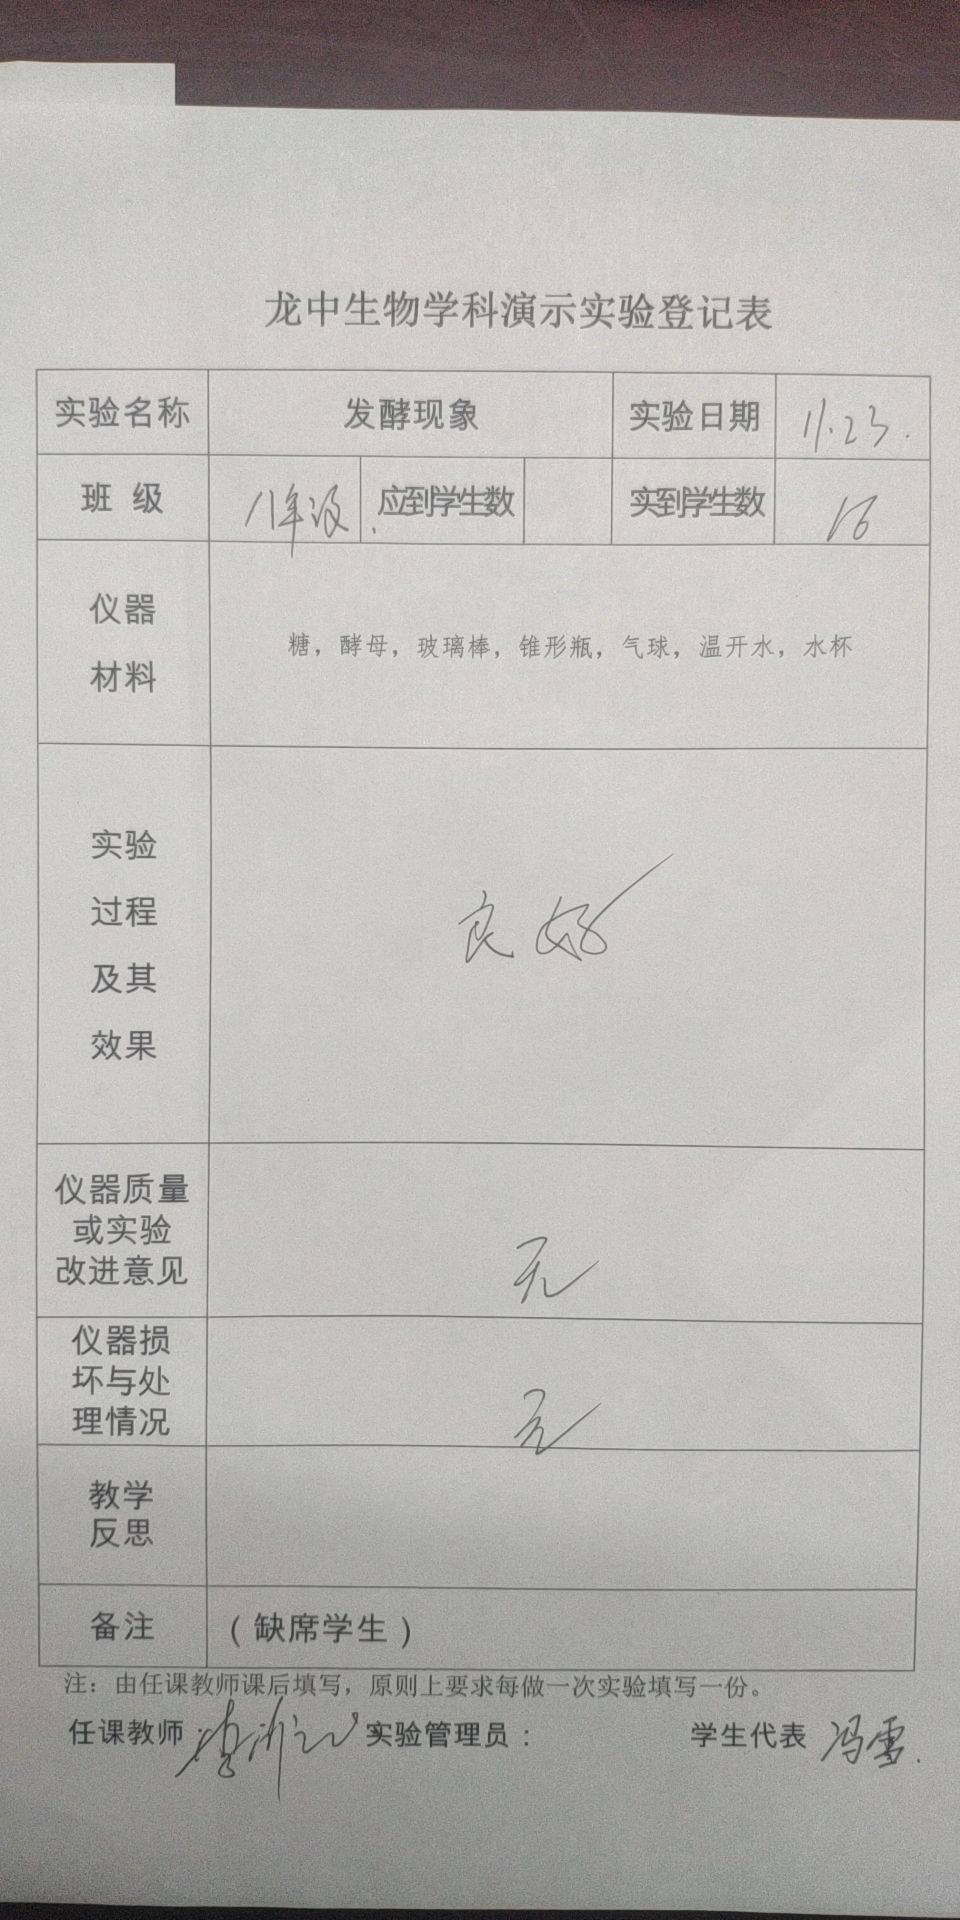 龙中生物学科演示实验登记表
实验名称 发酵现象 实验日期 11.23.
班 级 八年级. 应到学生数 实到学生数 16
仪器
材料
糖，酵母，玻璃棒，锥形瓶，气球，温开水，水杯
实验
过程
及其
效果
良好
仪器质量
或实验
改进意见
无
仪器损
坏与处
理情况
无
教学
反思
备注 （缺席学生）
注：由任课教师课后填写，原则上要求每做一次实验填写一份。
任课教师： 实验管理员： 学生代表 冯雪.